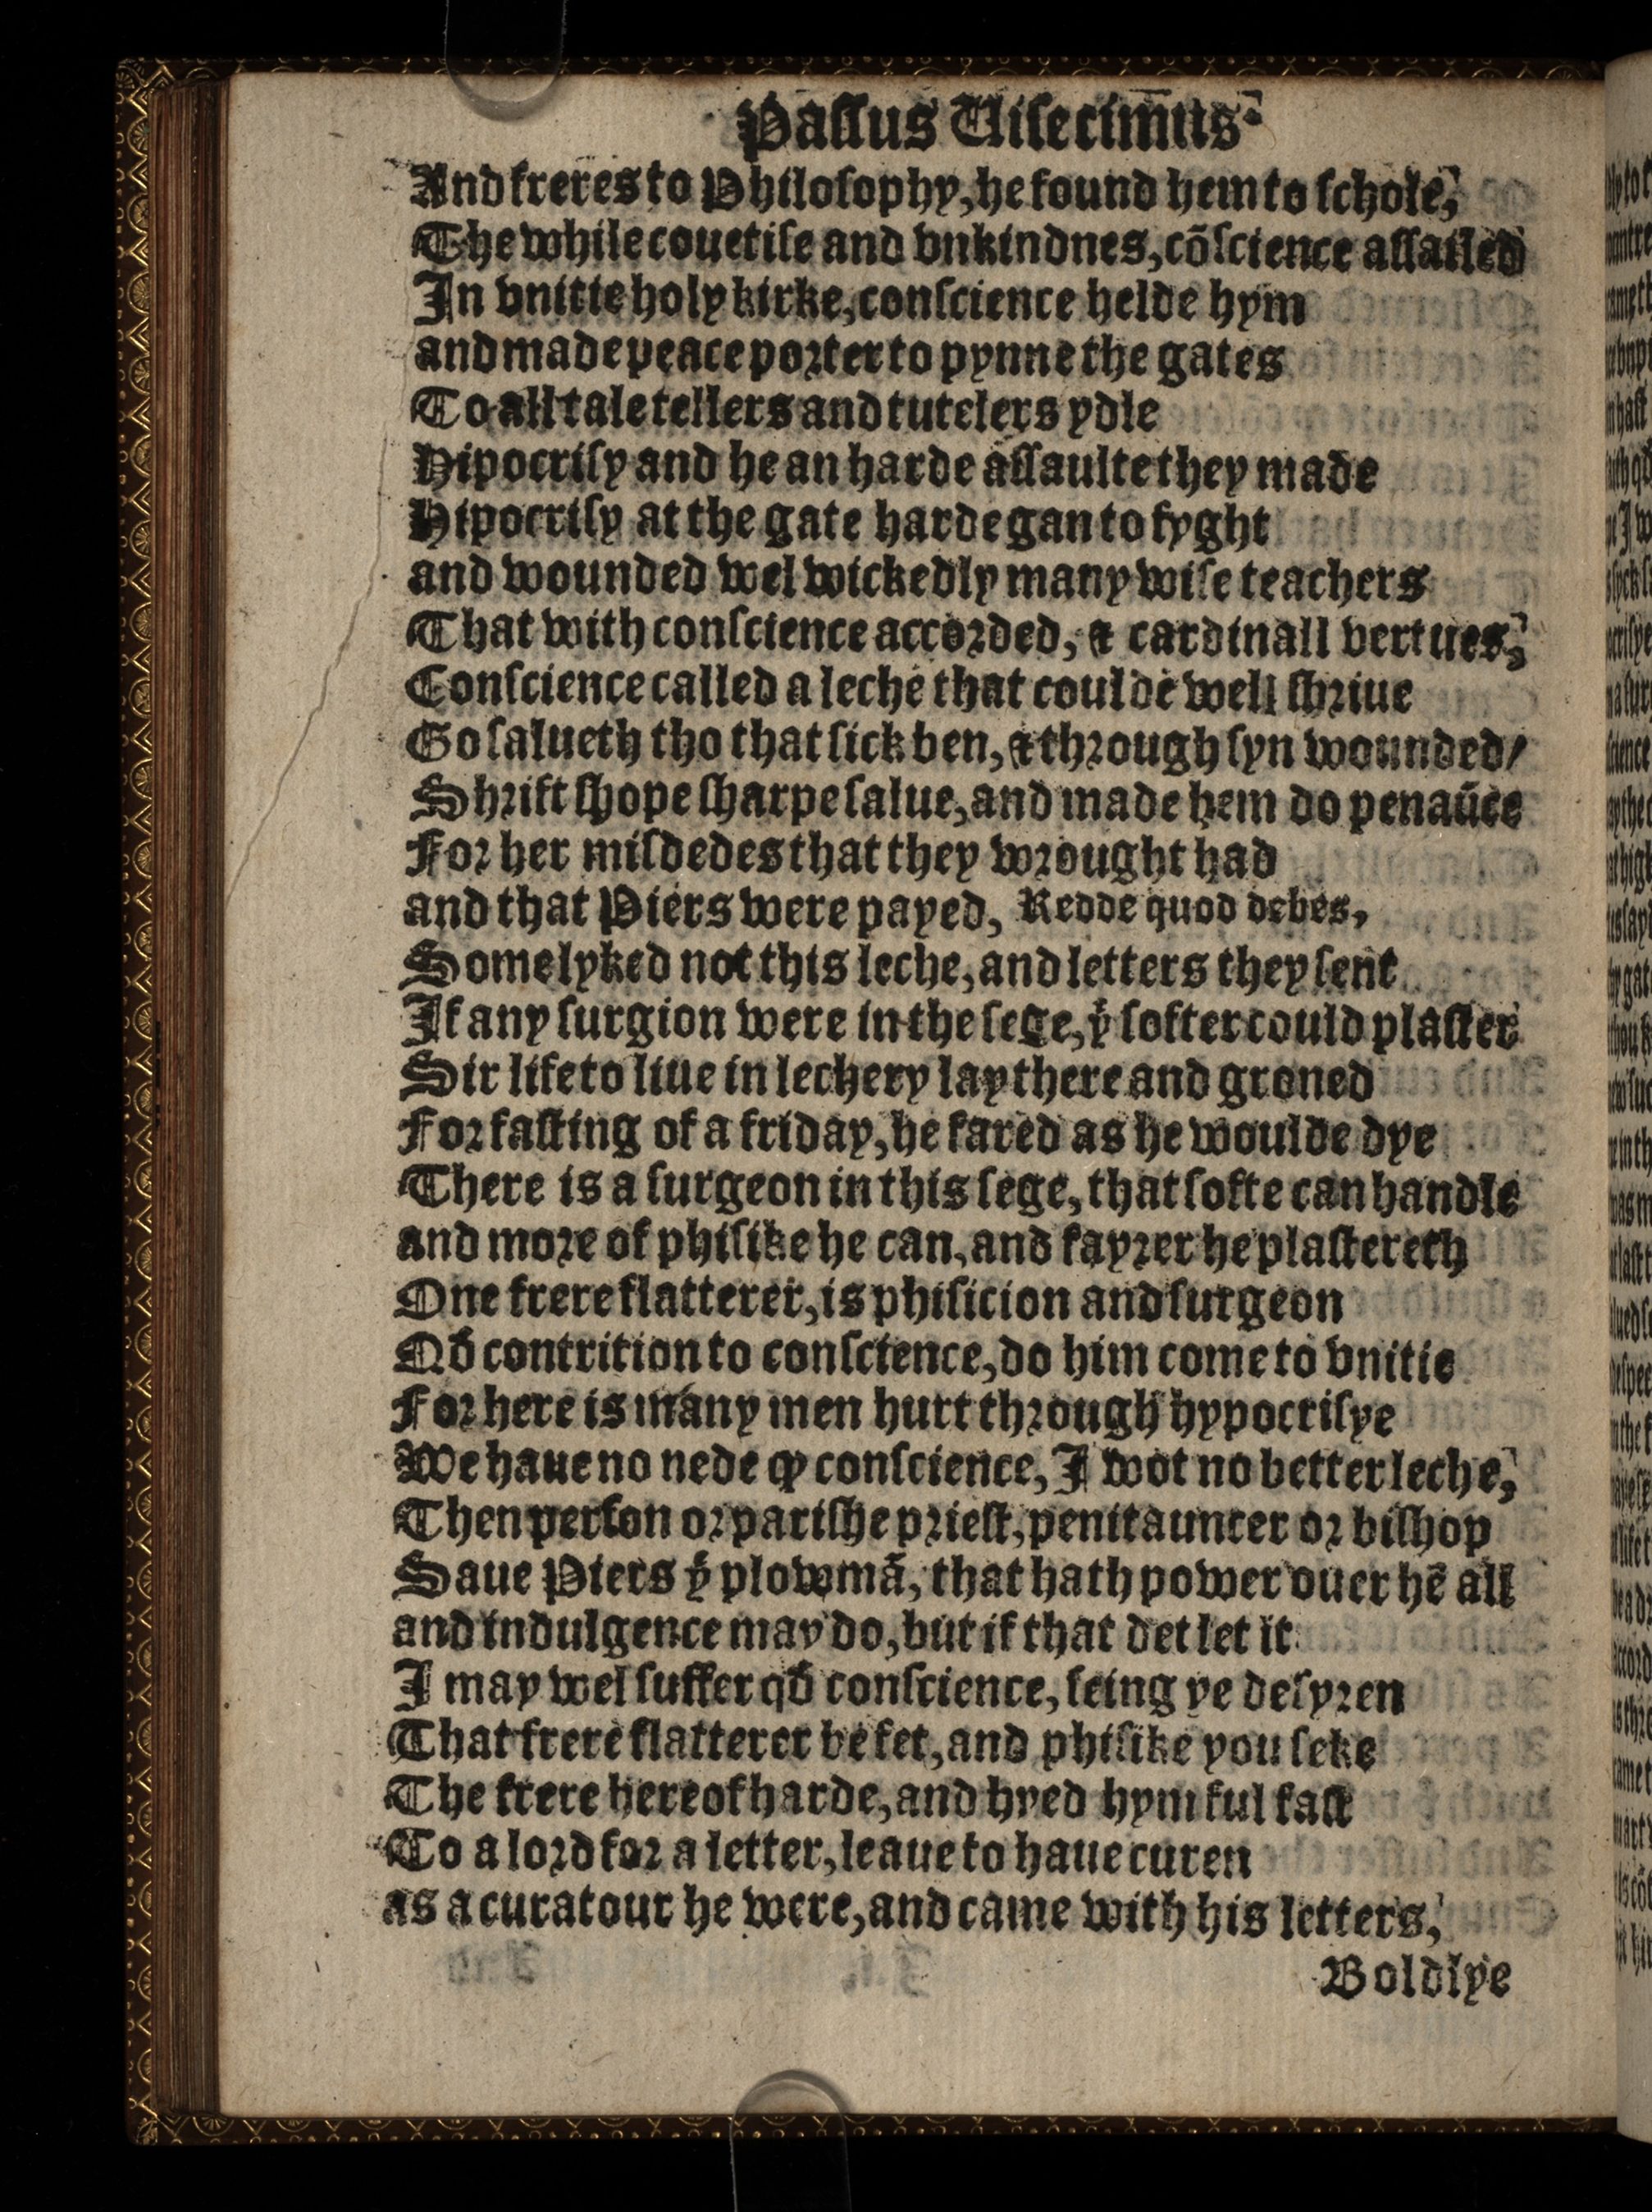 Paſſus Uiſecimus
And freres to Philoſophy, he found hem to ſchole,
The while couetiſe and vnkindnes, cõſcience aſſailed
In vnitie holy kirke, conſcience helde hym
and made peace porter to pynne the gates
To all tale tellers and tutelers ydle
Hipocriſy and he an harde aſſaulte they made
Hipocriſy at the gate harde gan to fyght
and wounded wel wickedly many wiſe teachers
That with conſcience accorded, & cardinall vertues,
Conſcience called a leche that coulde well ſhriue
Go ſalueth tho that ſick ben, & through ſyn wounded/
Shrift ſhope ſharpe ſalue, and made hem do penaũce
For her miſdedes that they wrought had
and that Piers were payed, Redde quod debes,
Some lyked not this leche, and letters they ſent
If any ſurgion were in the ſege, yͭ ſofter could plaſter
Sir life to liue in lechery lay there and groned
For faſting of a friday, he fared as he woulde dye
There is a ſurgeon in this ſege, that ſofte can handle
and more of phiſike he can, and fayrer he plaſtereth
One frere flatterer, is phiſicion and ſurgeon
Qđ contrition to conſcience, do him come to vnitie
For here is many men hurt through hypocriſye
We haue no nede qͥ conſcience, I wot no better leche,
Then perſon or pariſhe prieſt, penitauncer or biſhop
Saue Piers yͤ plowmã, that hath power ouer hẽ all
and indulgence may do, but if that det let it
I may wel ſuffer qđ conſcience, ſeing ye deſyren
That frere flatterer be fet, and phiſike you ſeke
The frere hereof harde, and hyed hym ful faſt
To a lord for a letter, leaue to haue curen
as a curatour he were, and came with his letters,
Boldlye